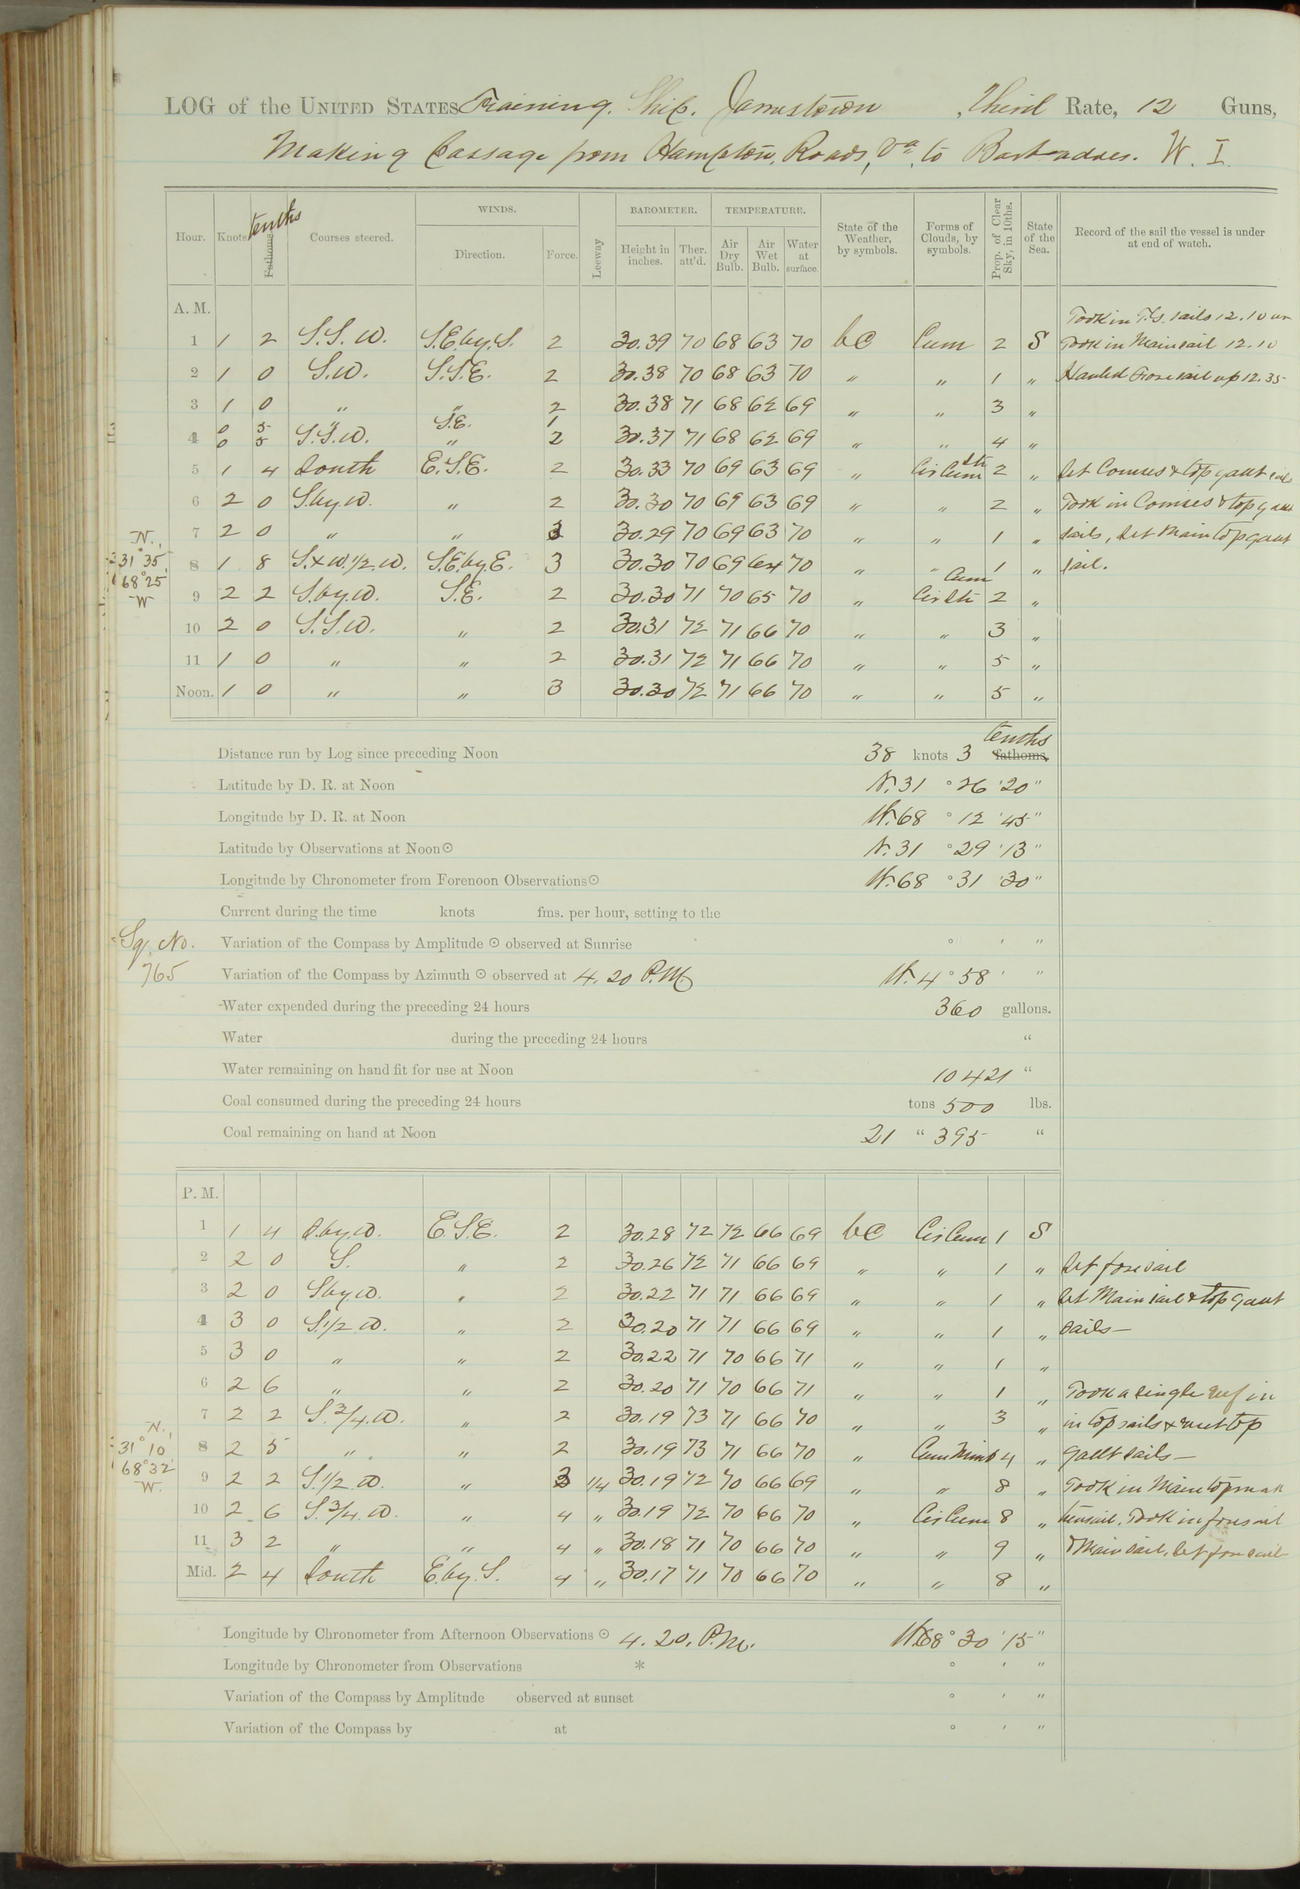 LOG of the UNITED STATES Training Ship Jamestown, Third Rate, 12 Guns,
Making Passage from Hampton Roads, Va. to Barbadoes. W. I.
Hour. Knots Fathoms. tenths Courses steered. WINDS. Direction. Force. Leeway BAROMETER. Height in inches. Ther. att'd. TEMPERATURE. Air Dry Bulb. Air Wet Bulb. Water at surface. State of the Weather, by symbols. Forms of Clouds, by symbols. Prop. of Clear Sky, in 10ths. State of the Sea. Record of the sail the vessel is under at end of watch.
A. M. Took in T.G. sails 12.10
1 1 2 S.S.W. S.E. by S. 2 30.39 70 68 63 70 bc Cum 2 S Took in Mainsail 12.10
2 1 0 S.W. S.S.E. 2 30.38 70 68 63 70 " " 1 " Hauled Foresail up 12.35
3 1 0 " " 2 30.38 71 68 62 69 " " 3 "
0 5 " S.E. 1
4 0 5 S.S.W. " 2 30.37 71 68 62 69 " " 4 "
5 1 4 South E.S.E. 2 30.33 70 69 63 69 " Cir Cum Str 2 " Set Courses & top gant sails
6 2 0 S. by W. " 2 30.30 70 69 63 69 " " 2 " Took in Courses & top gant
7 2 0 " " 3 30.29 70 69 63 70 " " 1 " sails, Set Main top gant
8 1 8 S. x W. 1/2 W. S.E. by E. 3 30.30 70 69 64 70 " " 1 " sail.
N.
31° 35'
68° 25'
W
9 2 2 S. by W. S.E. 2 30.30 71 70 65 70 " Cum Cir Str 2 "
10 2 0 S.S.W. " 2 30.31 72 71 66 70 " " 3 "
11 1 0 " " 2 30.31 72 71 66 70 " " 5 "
Noon. 1 0 " " 3 30.30 72 71 66 70 " " 5 "
Distance run by Log since preceding Noon 38 knots 3 fathoms. tenths
Latitude by D. R. at Noon N. 31 ° 26 ' 20 "
Longitude by D. R. at Noon W. 68 ° 12 ' 45 "
Latitude by Observations at Noon ☉ N. 31 ° 29 ' 13 "
Longitude by Chronometer from Forenoon Observations ☉ W. 68 ° 31 ' 30 "
Current during the time knots fms. per hour, setting to the
Sq. No.
765
Variation of the Compass by Amplitude ☉ observed at Sunrise ° ' "
Variation of the Compass by Azimuth ☉ observed at 4.20 P.M. W. 4 ° 58 ' "
Water expended during the preceding 24 hours 360 gallons.
Water during the preceding 24 hours "
Water remaining on hand fit for use at Noon 10421 "
Coal consumed during the preceding 24 hours tons 500 lbs.
Coal remaining on hand at Noon 21 " 395 "
P. M.
1 1 4 S. by W. E.S.E. 2 30.28 72 72 66 69 bc Cir Cum 1 S
2 2 0 S. " 2 30.26 72 71 66 69 " " 1 " Set foresail
3 2 0 S by W. " 2 30.22 71 71 66 69 " " 1 " Set Main sail & top gant
4 3 0 S. 1/2 W. " 2 30.20 71 71 66 69 " " 1 " sails—
5 3 0 " " 2 30.22 71 70 66 71 " " 1 "
6 2 6 " " 2 30.20 71 70 66 71 " " 1 " Took a single reef in
7 2 2 S. 3/4 W. " 2 30.19 73 71 66 70 " " 3 " in top sails & set top
8 2 5 " " 2 30.19 73 71 66 70 " Cum Nimb 4 " gant sails—
N.
31° 10'
68° 32'
W.
9 2 2 S. 1/2 W. " 3 1/4 30.19 72 70 66 69 " " 8 " Took in Main topmast
10 2 6 S. 3/4 W. " 4 " 30.19 72 70 66 70 " Cir Cum 8 " Took in foresail
11 3 2 " " 4 " 30.18 71 70 66 70 " " 9 " & Main sail. Set fore sail
Mid. 2 4 South E. by S. 4 " 30.17 71 70 66 70 " " 8 "
Longitude by Chronometer from Afternoon Observations ☉ 4.20. P.M. W. 68 ° 30 ' 15 "
Longitude by Chronometer from Observations * ° ' "
Variation of the Compass by Amplitude observed at sunset ° ' "
Variation of the Compass by at ° ' "